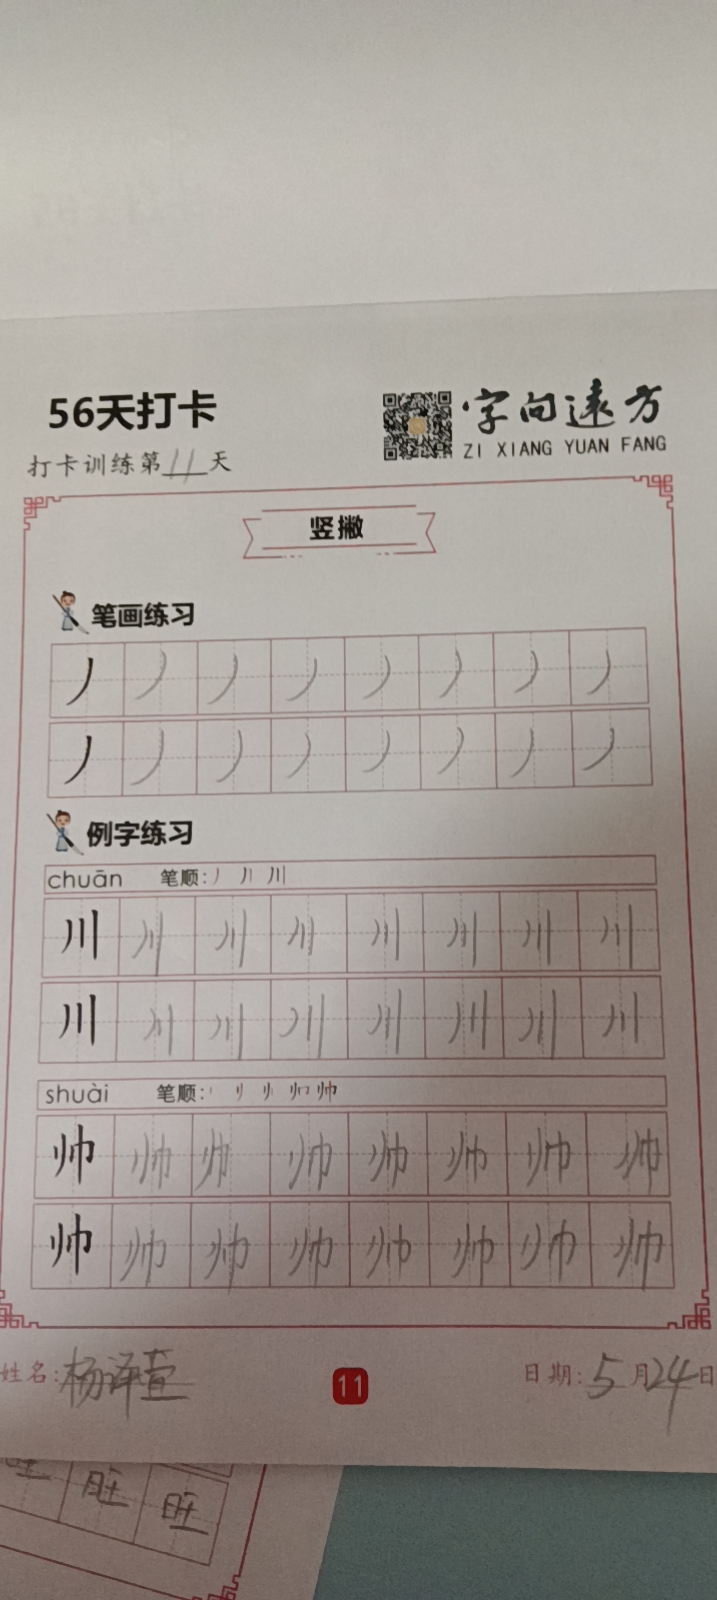 56天打卡
字向远方
ZI XIANG YUAN FANG
打卡训练第11天
竖撇
笔画练习
丿丿丿丿丿丿丿丿
丿丿丿丿丿丿丿丿
例字练习
chuān 笔顺:丿 川
川川川川川川川川
川川川川川川川川
shuài 笔顺: 帅
帅帅帅帅帅帅帅帅
帅帅帅帅帅帅帅帅
姓名:杨译萱
11
日期:5月24日
旺旺旺